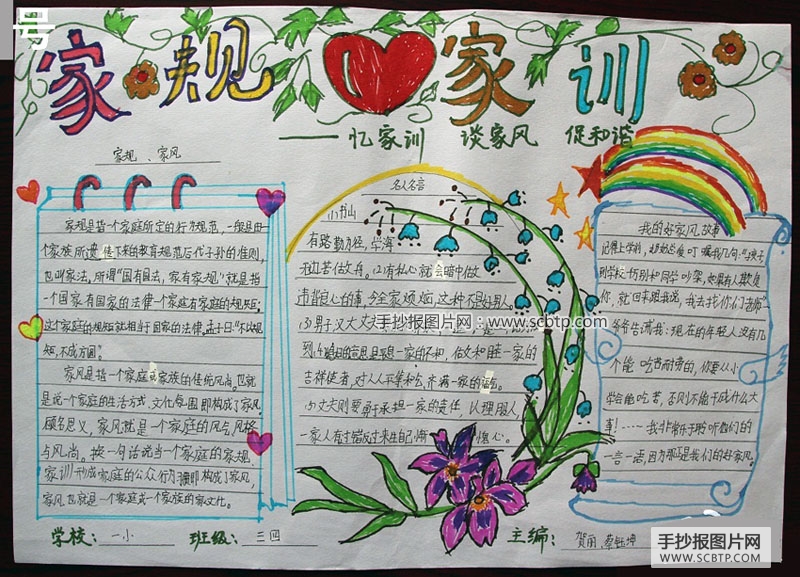 号
家规 家训
——忆家训 谈家风 促和谐
家规、家风
家规是指一个家庭所定的行为规范,一般是由
一个家族所遗传下来的教育规范后代子孙的准则,
也叫家法。所谓“国有国法,家有家规”就是指
一个国家有国家的法律一个家庭有家庭的规矩;
这个家庭的规矩就相当于国家的法律。孟子曰:“不以规
矩,不成方圆”。
家风是指一个家庭或家族的传统风尚。也就
是说一个家庭的生活方式、文化每围即构成了家风.
顾名思义,家风就是一个家庭的风气、风格
与风尚。换一句话说当一个家庭的家规、
家训形成家庭的公众行为 即构成了家风,
家风也就是一个家庭或一个家族的家文化。
名人名言
小书山
有路勤为径,学海
无边苦做舟。(2)有私心 就会暗中做
违背良心的事,令全家烦恼,这种不是好男人。
(3)男子汉大丈夫
手抄报图片网:www.scbtp.com
到 的意思是思一家的不和,做女和睦一家的
吉祥使者,对人人平等和气,亲满一家的
(5)丈夫则要勇于承担一家的责任,认理服人,
一家人有过错反过来生自己 心。
我的好家风故事
记得上学时,奶奶总爱叮嘱我几句:“孩子
到学校仿别和同学吵架,如果有人欺负
你,就回来跟我说,我去找你们老师”
爷爷告诫我:现在的年轻人没有几
个能吃苦耐劳的,你要从小
学会能吃苦,否则不能干成什么大
事!……我非常乐于聆听他们的
一言一语,因为那正是我们的好家风。
学校: 一小 班级: 三四 主编: 贺丽、蔡
手抄报图片网
WWW.SCBTP.COM